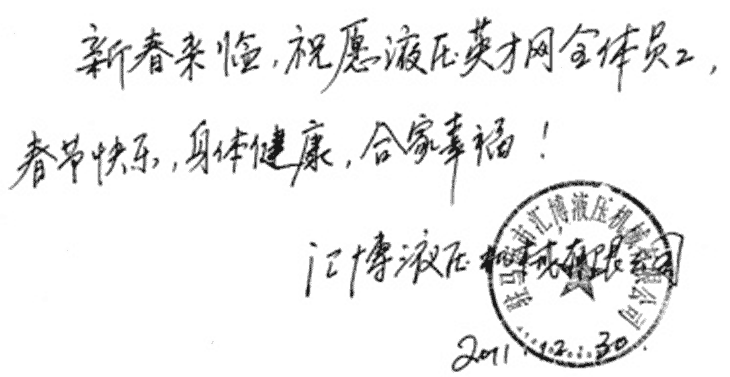 新春来临，祝愿液压英才网全体员工，
春节快乐，身体健康，合家幸福！
汇博液压机械有限公司
驻马店市汇博液压机械有限公司
2011.12.30.